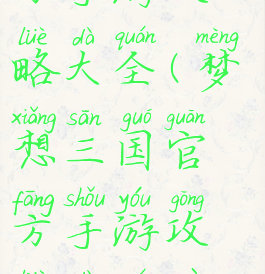 lüè dà quán mèng
略大全(梦
xiǎng sān guó guān
想三国官
fāng shǒu yóu gōng
方手游攻